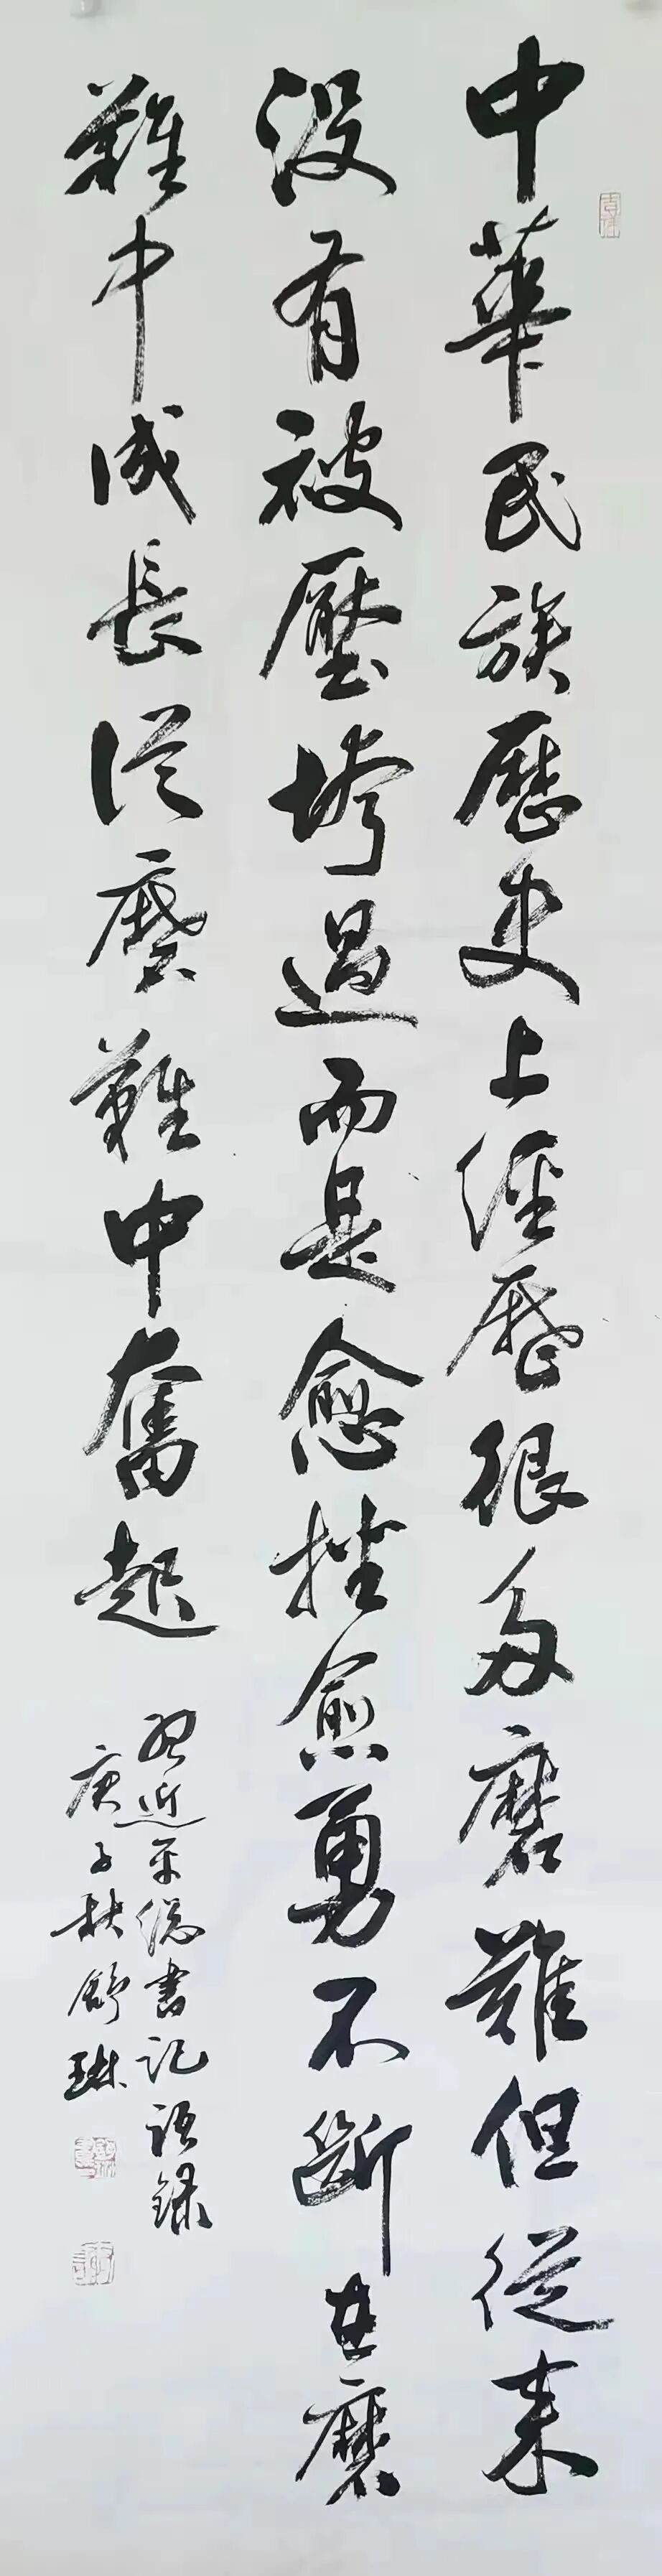 中華民族歷史上經歷很多磨難但從来
没有被壓垮過而是愈挫愈勇不斷在磨
難中成長從磨難中奮起
習近平總書記語録
庚子秋舒琳